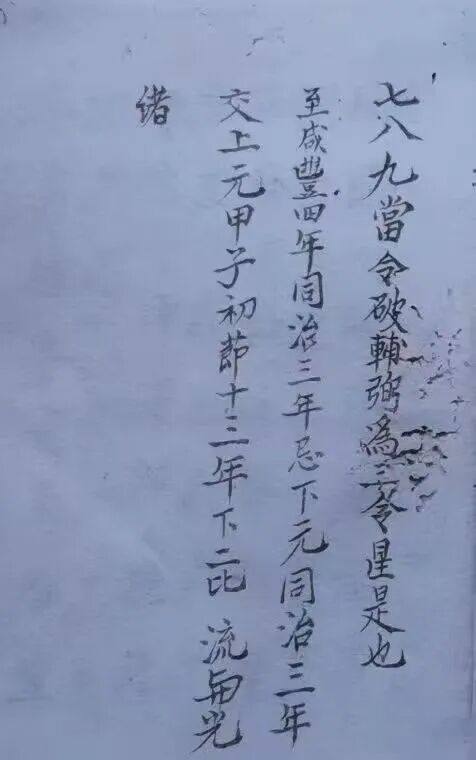 七八九當令破輔弼為三令星是也
至咸豐四年同治三年忌下元同治三年
交上元甲子初節十三年下二比 流與光
緒